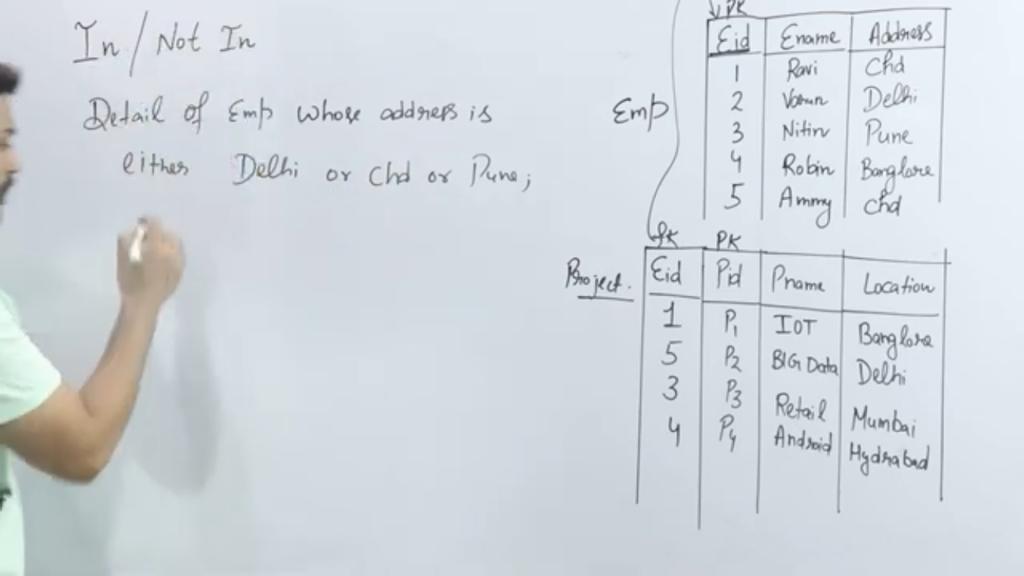 In / Not In
Detail of Emp whose address is
either Delhi or Chd or Pune;
Emp
PK
Eid Ename Address
1 Ravi Chd
2 Varun Delhi
3 Nitin Pune
4 Robin Banglore
5 Ammy Chd
Project.
fk PK
Eid Pid Pname Location
1 P1 IOT Banglore
5 P2 BIG Data Delhi
3 P3 Retail Mumbai
4 P4 Android Hydrabad